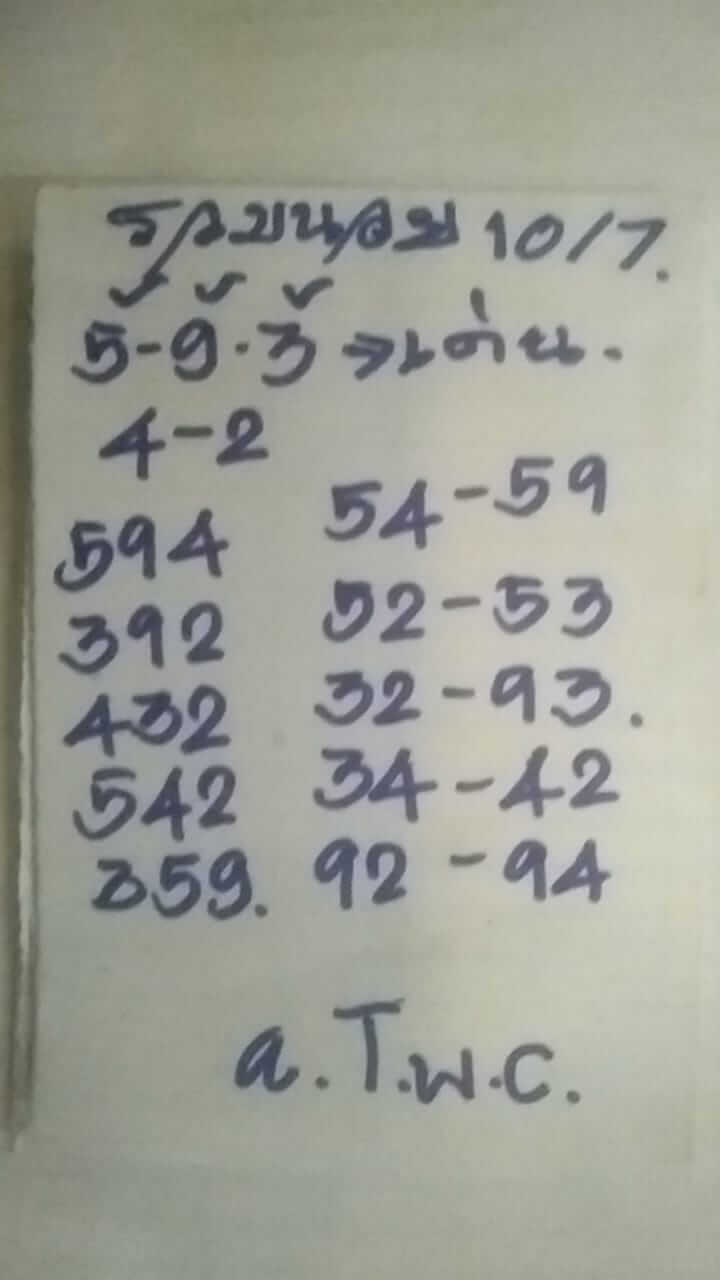 10/7.
5-9.3 →เด่น.
4-2
594 54-59
392 52-53
432 32-93.
542 34-42
359. 92-94
a.T.พ.c.